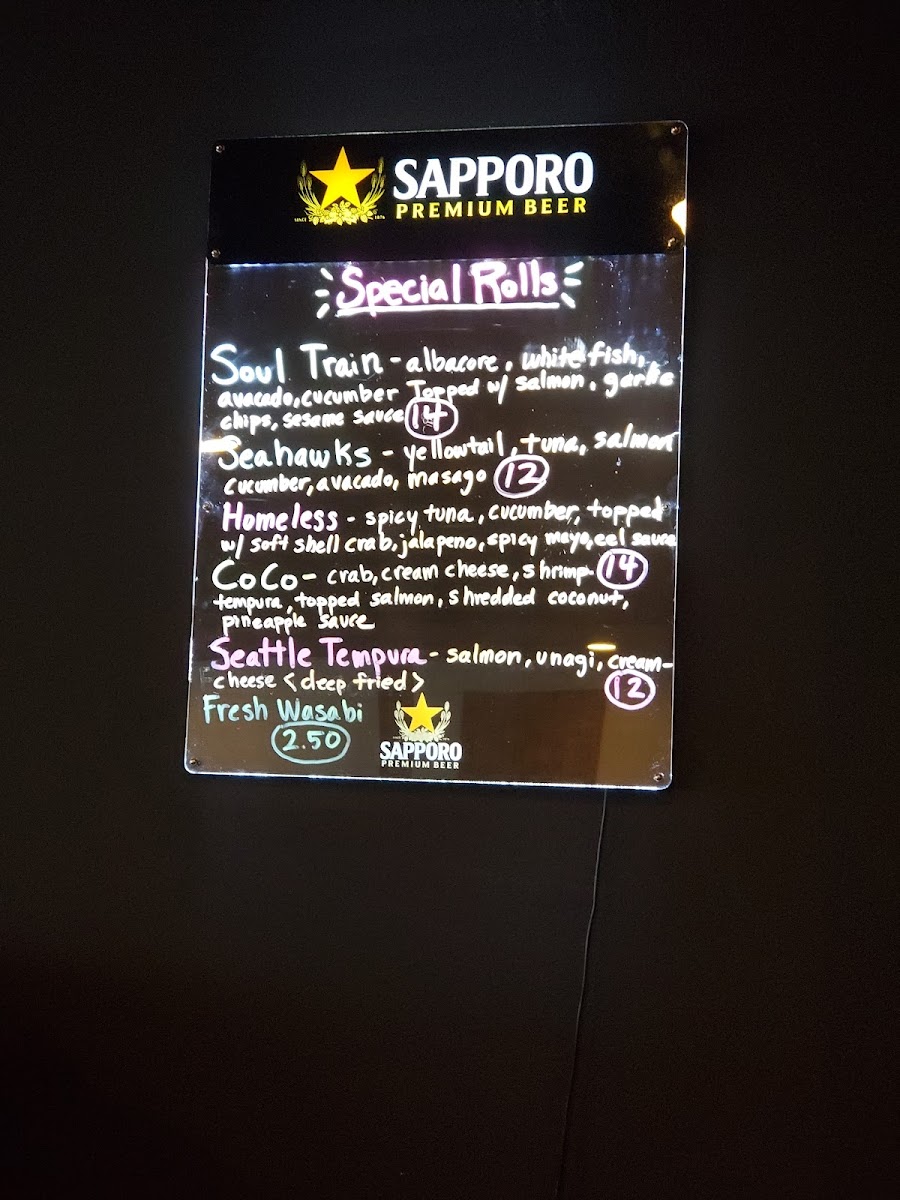 SAPPORO
PREMIUM BEER
SINCE 1876
Special Rolls
Soul Train - albacore, white fish,
avacado, cucumber Topped w/ salmon, garlic
chips, sesame sauce 14
Seahawks - yellowtail, tuna, salmon
cucumber, avacado, masago 12
Homeless - spicy tuna, cucumber, topped
w/ soft shell crab, jalapeno, spicy mayo, eel sauce
CoCo - crab, cream cheese, shrimp 14
tempura, topped salmon, shredded coconut,
pineapple sauce
Seattle Tempura - salmon, unagi, cream-
cheese <deep fried> 12
Fresh Wasabi
2.50
SAPPORO
PREMIUM BEER